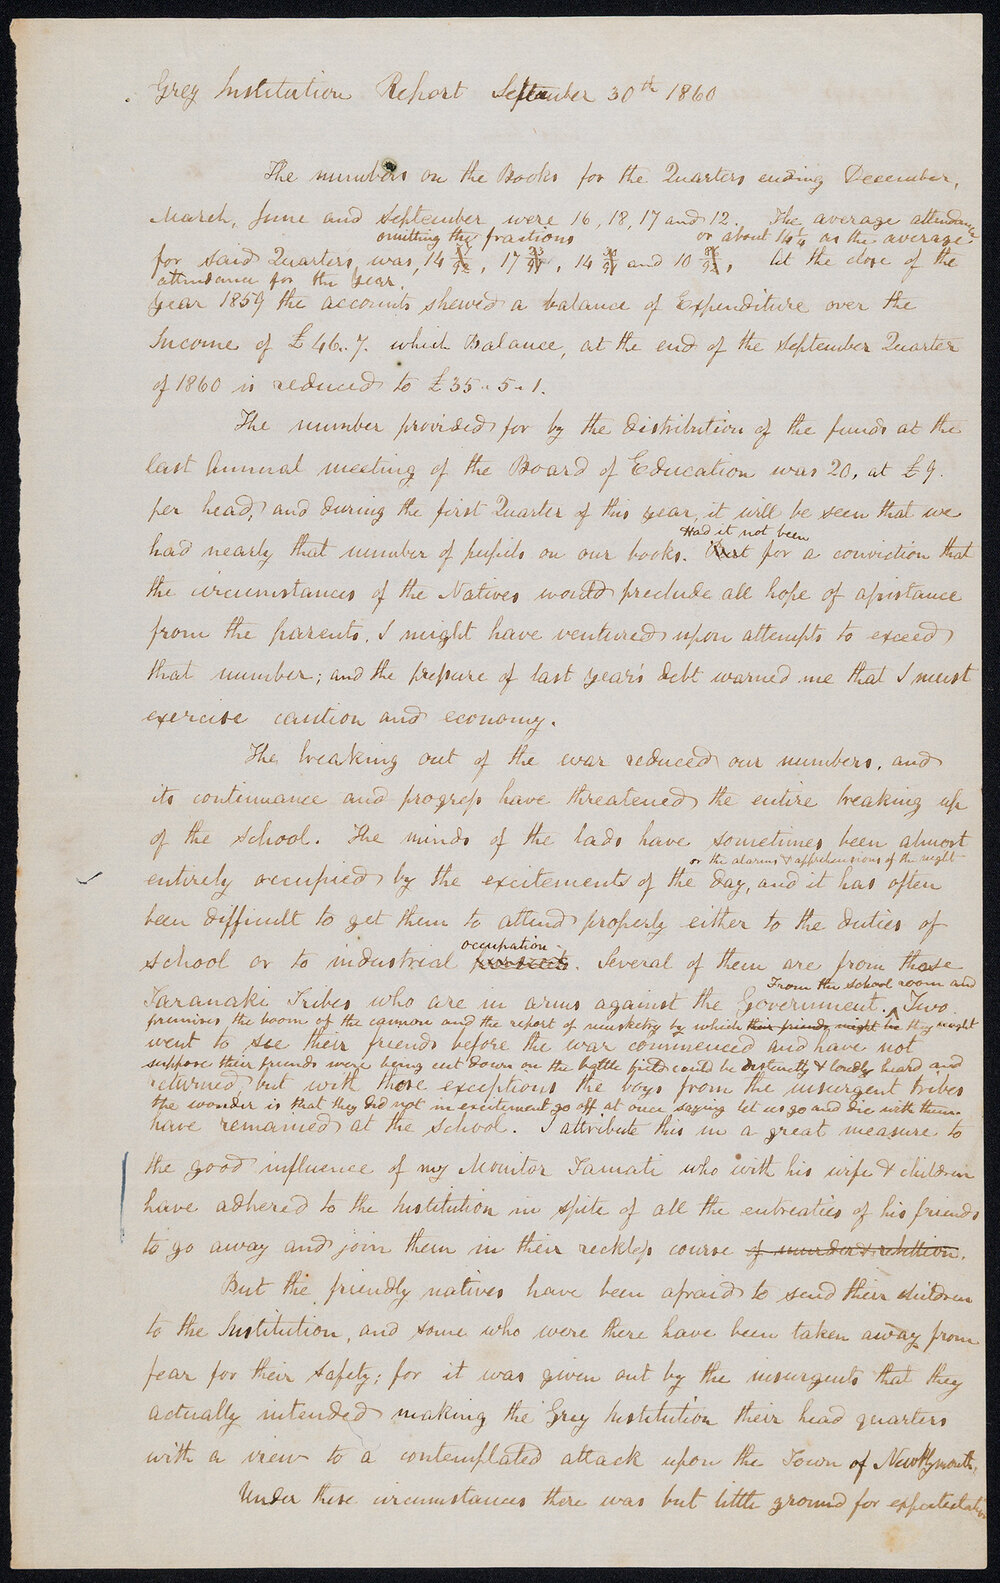 Grey Institution Report September 30th 1860
The numbers on the Books for the Quarters ending December,
March, June and September were 16, 18, 17 and 12. The average attendance
omitting the fractions or about 14 1/4 as the average
for said Quarters was, 14, 17, 14 and 10. At the close of the
attendance for the year.
Year 1859 the accounts shewed a balance of Expenditure over the
Income of £46..7. which Balance, at the end of the September Quarter
of 1860 is reduced to £35..5..1.
The number provided for by the distribution of the funds at the
last Annual meeting of the Board of Education was 20, at £9.
per head, and during the first Quarter of this year, it will be seen that we
Had it not been
had nearly that number of pupils on our books. But for a conviction that
the circumstances of the Natives would preclude all hope of assistance
from the parents, I might have ventured upon attempts to exceed
that number; and the pressure of last year's debt warned me that I must
exercise caution and economy.
The breaking out of the war reduced our numbers, and
its continuance and progress have threatened the entire breaking up
of the school. The minds of the lads have sometimes been almost
or the alarms & apprehensions of the night
entirely occupied by the excitements of the day, and it has often
been difficult to get them to attend properly either to the duties of
occupation
school or to industrial pursuits. Several of them are from those
From the school room and
Taranaki Tribes who are in arms against the Government. Two
premises the boom of the cannon and the report of musketry by which their friends might be they might
went to see their friends before the war commenced and have not
suppose their friends were being cut down on the battle field could be distinctly & loudly heard and
returned, but with those exceptions the boys from the insurgent tribes
the wonder is that they did not in excitement go off at once saying let us go and die with them.
have remained at the school. I attribute this in a great measure to
the good influence of my Monitor Tamati who with his wife & children
have adhered to the Institution in spite of all the entreaties of his friends
to go away and join them in their reckless course of murder & rebellion.
But the friendly natives have been afraid to send their children
to the Institution, and some who were there have been taken away from
fear for their safety; for it was given out by the insurgents that they
actually intended making the Grey Institution their head quarters
with a view to a contemplated attack upon the Town of New Plymouth.
Under these circumstances there was but little ground for expectation